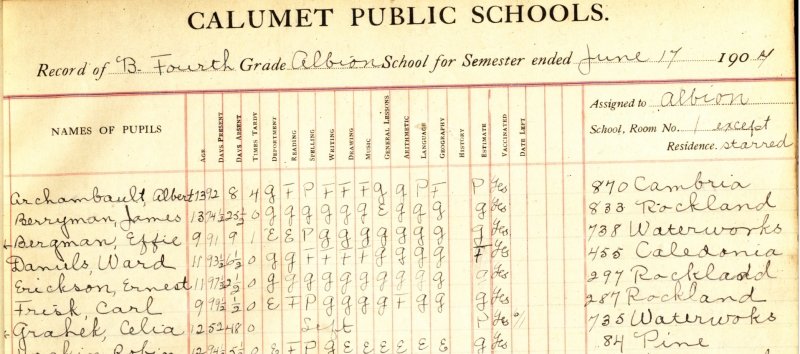 CALUMET PUBLIC SCHOOLS.
Record of B. Fourth Grade Albion School for Semester ended June 17 1904
Assigned to Albion
School, Room No. 1 except
Residence. starred
NAMES OF PUPILS AGE DAYS PRESENT DAYS ABSENT TIMES TARDY DEPORTMENT READING SPELLING WRITING DRAWING MUSIC GENERAL LESSONS ARITHMETIC LANGUAGE GEOGRAPHY HISTORY ESTIMATE VACCINATED DATE LEFT
Archambault, Albert 13 92 8 4 g F P F F F g g P F P Yes 870 Cambria
Berryman, James 13 74½ 25½ 0 g g g g g g E g g g g Yes 833 Rockland
Bergman, Effie 9 91 9 1 E E P g g g g g g g g Yes 738 Waterworks
Daniels, Ward 11 93½ 6½ 0 g g F Yes 455 Caledonia
Erickson, Ernest 11 97½ 2½ 0 g g g g g g g g g g g Yes 297 Rockland
Frisk, Carl 9 99½ ½ 0 E F P g g g g F g g g Yes 287 Rockland
Grahek, Celia 12 52 48 0 Left P Yes 735 Waterwoks
Robin 12 0 E F P g E E E E E g g Yes 84 Pine